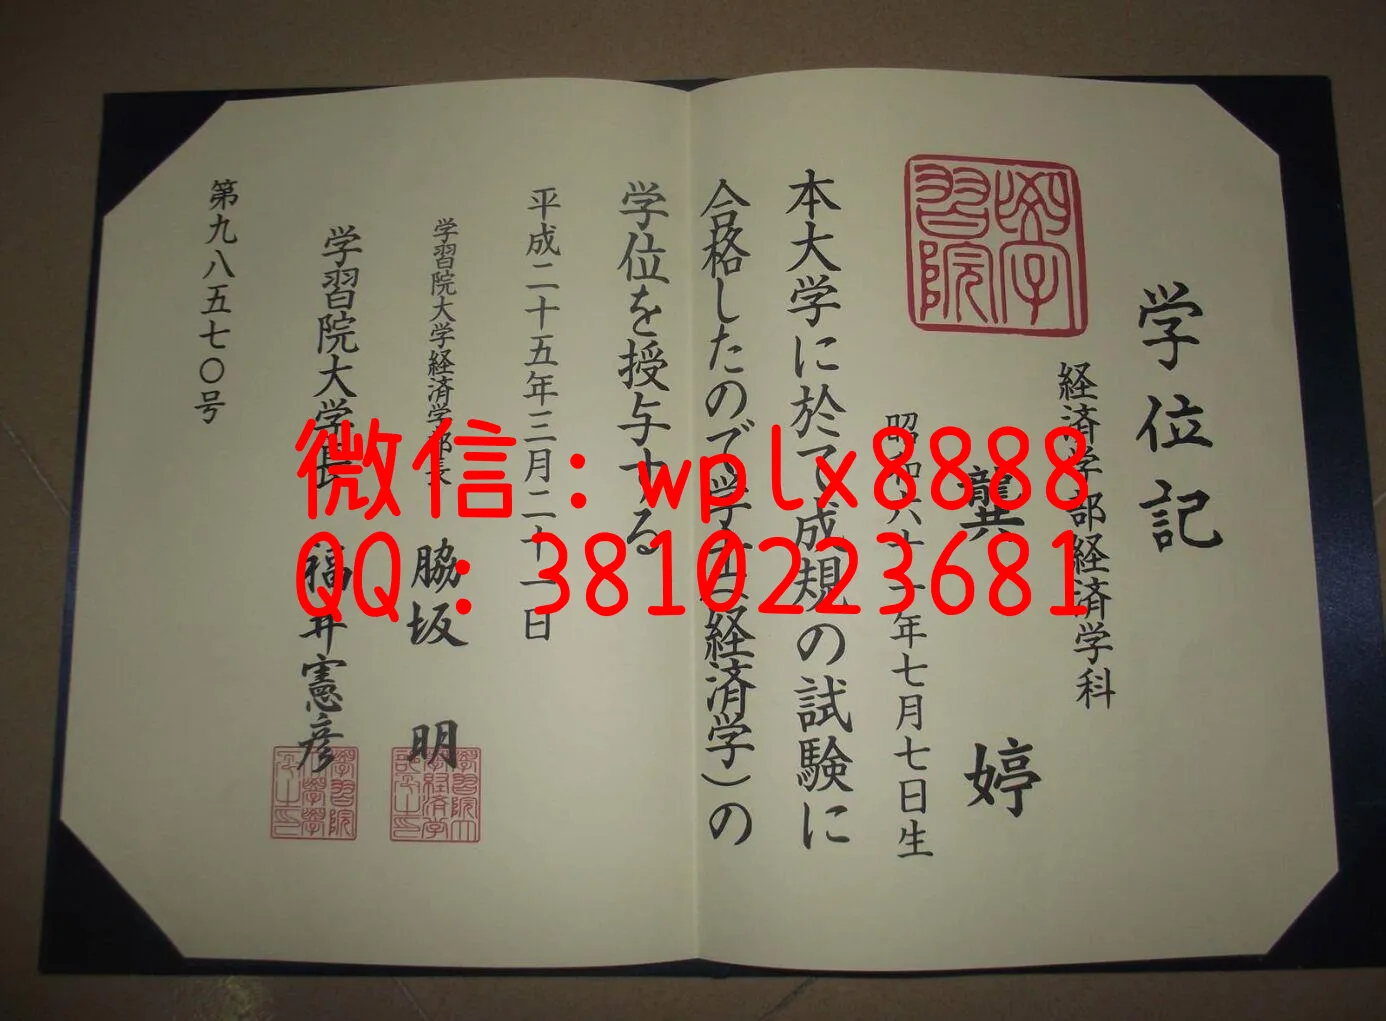 学位記
経済学部経済学科
龔 婷
昭和六十一年七月七日生
本大学に於て成規の試験に
合格したので学士(経済学)の
学位を授与する
平成二十五年三月二十一日
学習院大学経済学部長 脇坂 明
学習院大学長 福井憲彦
第九八五七〇号
學習院
微信：wplx8888
QQ：3810223681